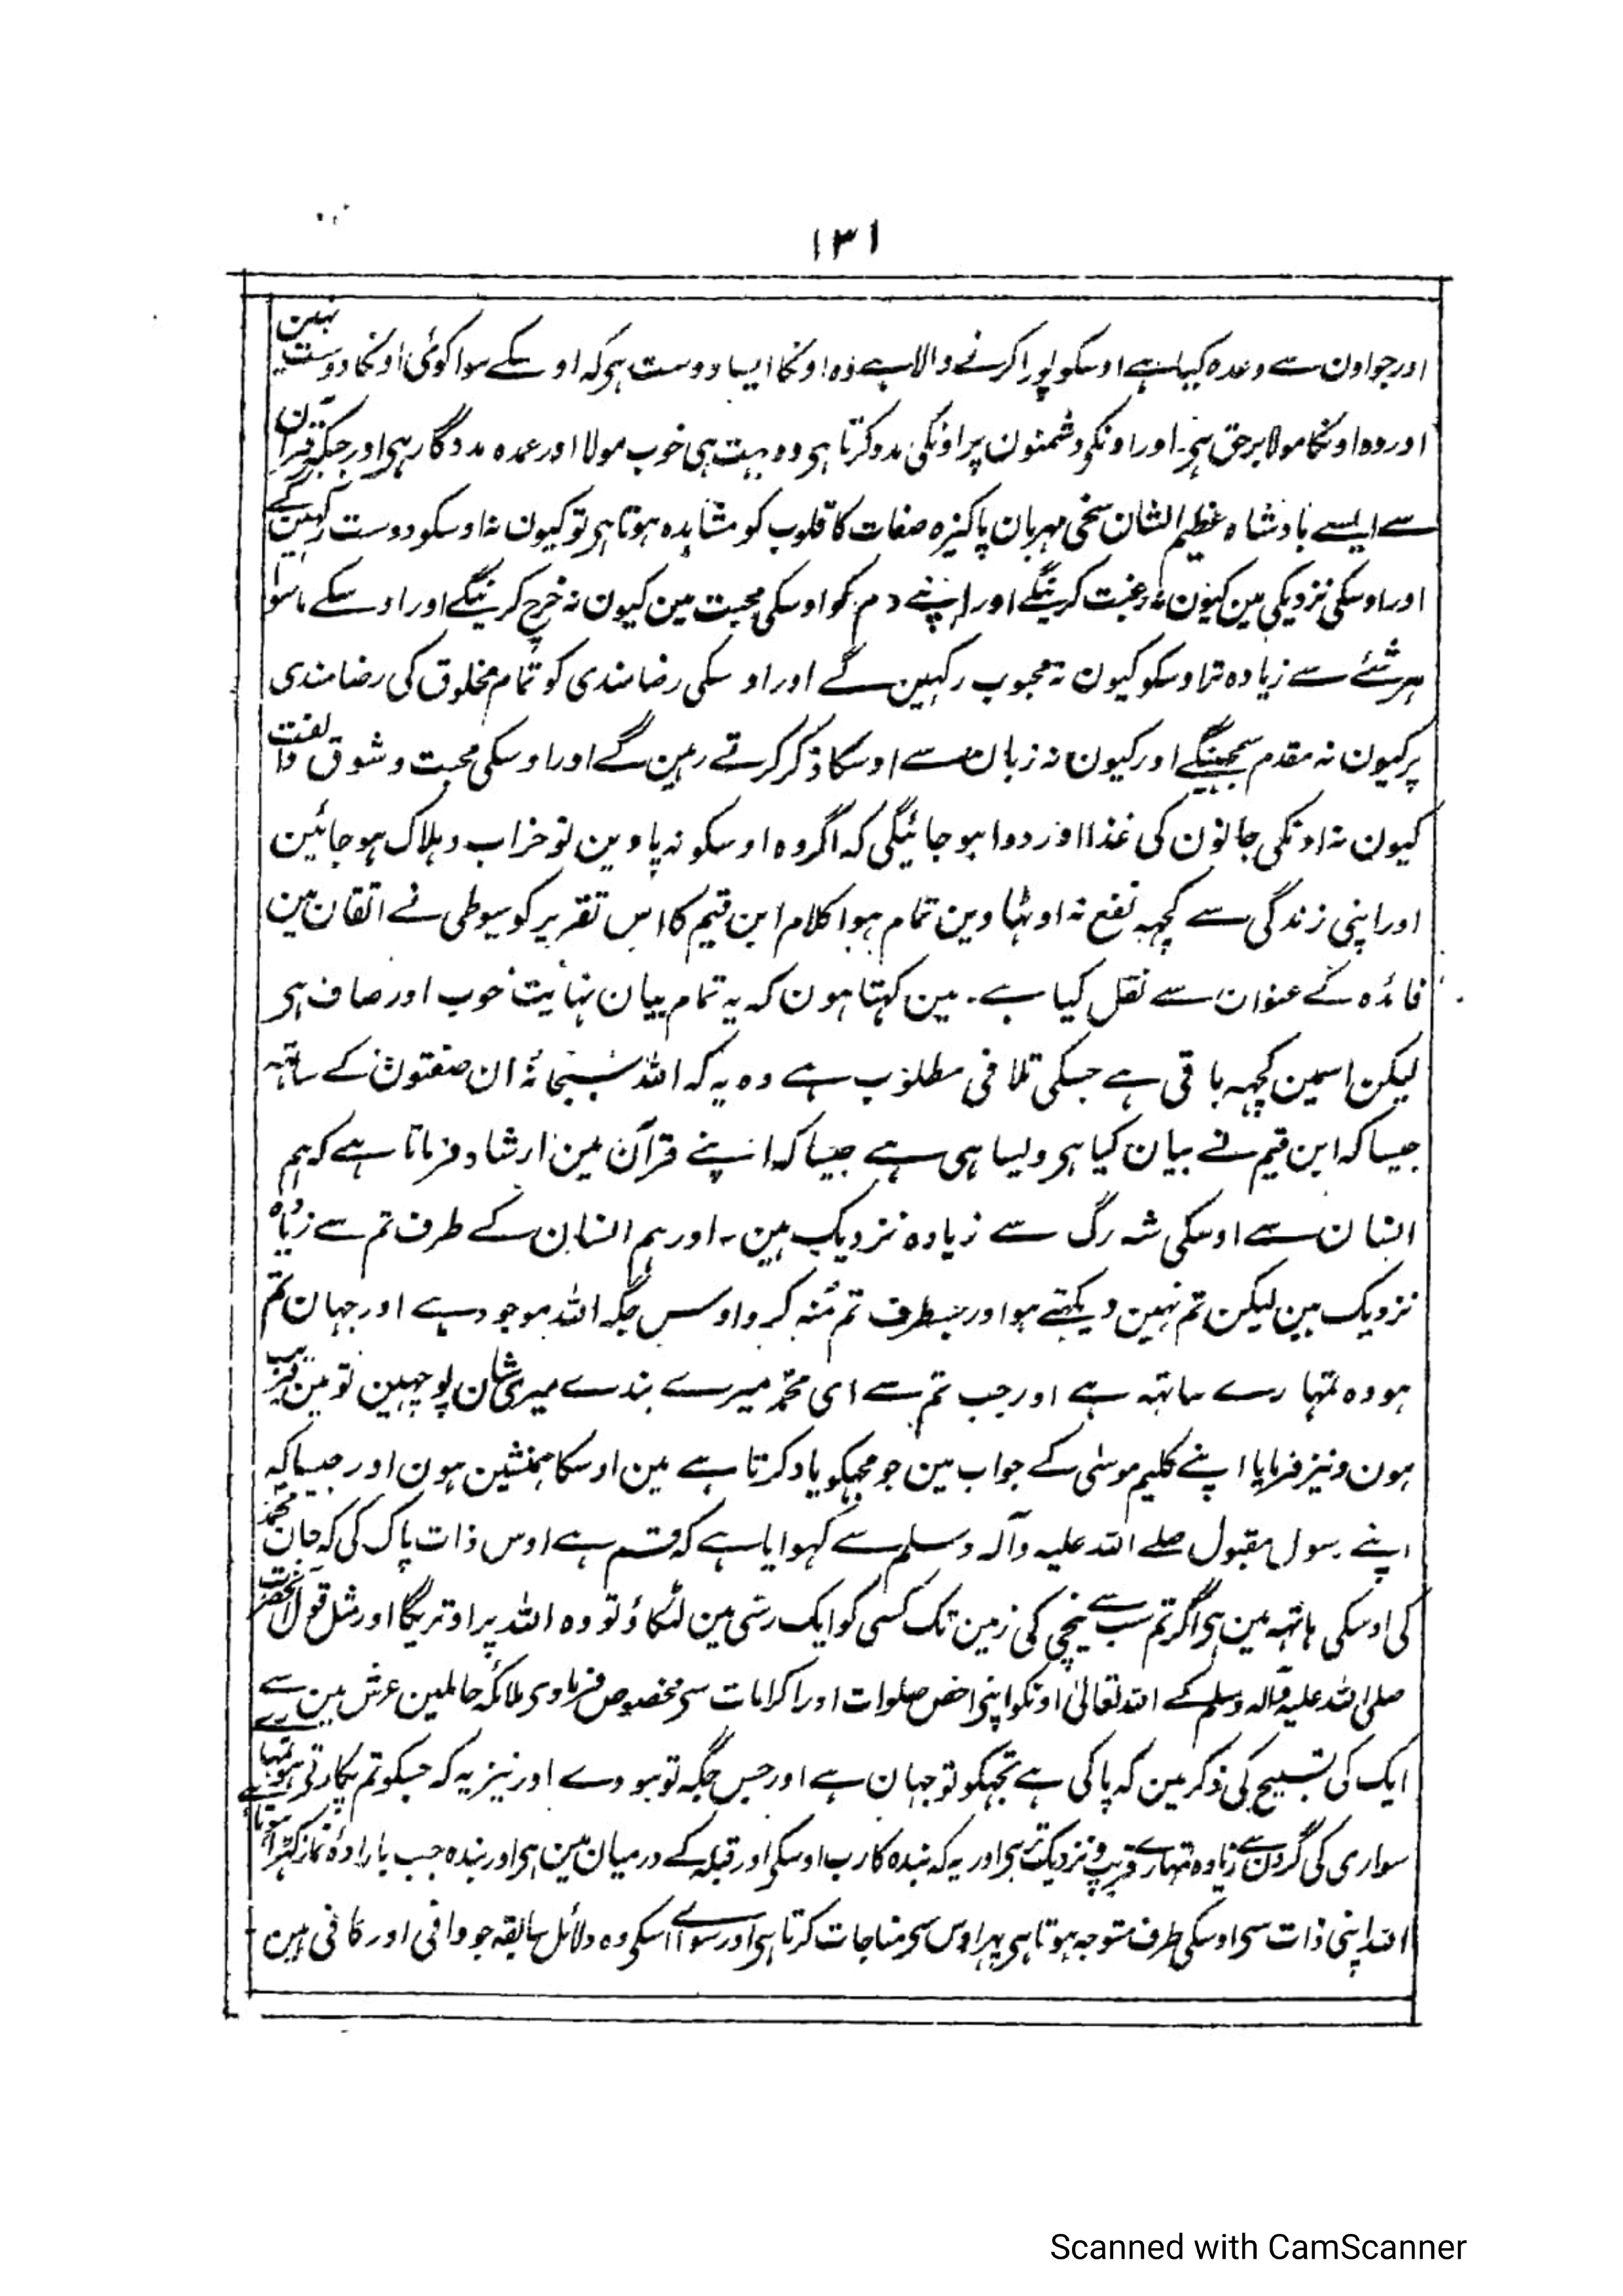 ۱۳۱
اور جو اون سے وعدہ کیا ہے اوسکو پورا کرنے والا ہے وہ اونکا ایسا دوست ہی کہ اوسکے سوا کوئی اونکا دوست نہین
اور وہ اونکا مولا برحق ہی اور اونکی دشمنون پر اونکی مدد کرتا ہی وہ بہت ہی خوب مولا اور عمدہ مددگار ہی اور جبکہ قرآن
سے ایسے بادشاہ عظیم الشان سخی مہربان پاکیزہ صفات کا قلوب کو مشاہدہ ہوتا ہی تو کیون نہ اوسکو دوست رکہین گے
اور اوسکی نزدیکی مین کیون نہ رغبت کرینگے اور اپنے دم کو اوسکی محبت مین کیون نہ خرچ کرینگے اور اوسکے ماسوا
ہر شئے سے زیادہ تر اوسکو کیون نہ محبوب رکہین گے اور اوسکی رضامندی کو تمام مخلوق کی رضامندی
پر کیون نہ مقدم سمجہینگے اور کیون نہ زبان سے اوسکا ذکر کرتے رہین گے اور اوسکی محبت و شوق والفت
کیون نہ اونکی جانون کی غذا اور دوا ہو جائیگی کہ اگر وہ اوسکو نہ پاوین تو خراب و ہلاک ہو جائین
اور اپنی زندگی سے کچہہ نفع نہ اوٹہاوین تمام ہوا کلام ابن قیم کا اس تقریر کو سیوطی نے اتقان مین
فائدہ کے عنوان سے نقل کیا ہے۔ مین کہتا ہون کہ یہ تمام بیان نہایت خوب اور صاف ہی
لیکن اسمین کچہہ باقی ہے جسکی تلافی مطلوب ہے وہ یہ کہ اللہ سُبحانہٗ ان صفتون کے ساتہہ
جیسا کہ ابن قیم نے بیان کیا ہی ویسا ہی ہے جیسا کہ اپنے قرآن مین ارشاد فرماتا ہے کہ ہم
انسان سے اوسکی شہ رگ سے زیادہ نزدیک ہین۔ اور ہم انسان کے طرف تم سے زیادہ
نزدیک ہین لیکن تم نہین دیکہتے ہو اور جسطرف تم مُنہ کرو اوس جگہ اللہ موجود ہے اور جہان تم
ہو وہ تمہارے ساتہہ ہے اور جب تم سے ای محمدؐ میرے بندے میری شان پوچہین تو مین قریب
ہون و نیز فرمایا اپنے کلیم موسٰی کے جواب مین جو مجہکو یاد کرتا ہے مین اوسکا ہمنشین ہون اور جیسا کہ
اپنے رسول مقبول صلے اللہ علیہ وآلہ وسلم سے کہوایا ہے کہ قسم ہے اوس ذات پاک کی کہ جان محمدؐ
کی اوسکی ہاتہہ مین ہی اگر تم سب سے نیچی کی زمین تک کسی کو ایک رسّی مین لٹکاؤ تو وہ اللہ پر اوتریگا اور مثل قول آنحضرت
صلی اللہ علیہ وآلہ وسلم کے اللہ تعالیٰ اونکو اپنی اخص صلوات اور اکرامات سی مخصوص فرماوی ملائکہ حاملین عرش مین سے
ایک کی تسبیح کی ذکر مین کہ پاکی ہے تجہکو تو جہان ہے اور جس جگہ تو ہووے اور نیز یہ کہ جسکو تم پکارتی ہو تمہارے
سواری کی گردن سے زیادہ تمہارے قریب و نزدیک تر ہی اور یہ کہ بندہ کا رب اوسکی اور قبلہ کے درمیان مین ہی اور بندہ جب بارادۂ نماز کہڑا ہوتا ہے
اللہ اپنی ذات سی اوسکی طرف متوجہ ہوتا ہی پہر اوس سی مناجات کرتا ہی اور سوائے اسکی وہ دلائل سابقہ جو وافی اور کافی ہین
Scanned with CamScanner